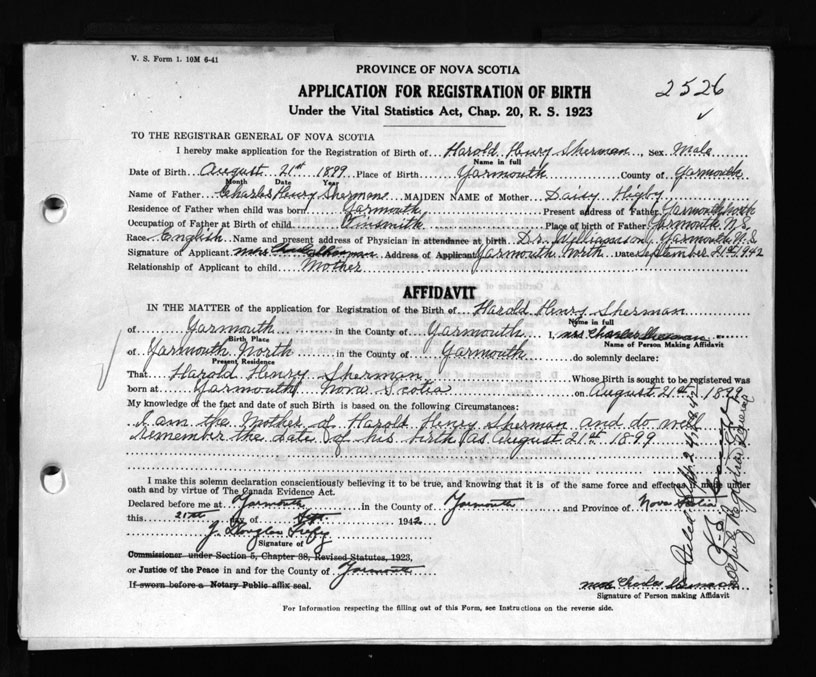 V. S. Form 1. 10M 6-41
PROVINCE OF NOVA SCOTIA
APPLICATION FOR REGISTRATION OF BIRTH
2526
Under the Vital Statistics Act, Chap. 20, R. S. 1923
TO THE REGISTRAR GENERAL OF NOVA SCOTIA
I hereby make application for the Registration of Birth of Harold Henry Sherman, Sex Male
Name in full
Date of Birth August 21st 1899 Place of Birth Yarmouth County of Yarmouth
Month Date Year
Name of Father Charles Henry Sherman MAIDEN NAME of Mother Daisy Higby
Residence of Father when child was born Yarmouth Present address of Father Yarmouth North
Occupation of Father at Birth of child Tinsmith Place of birth of Father Yarmouth N.S.
Race English Name and present address of Physician in attendance at birth Dr. Williamson, Yarmouth N.S
Signature of Applicant Mrs Charles Sherman Address of Applicant Yarmouth North Date September 21st 1942
Relationship of Applicant to child Mother
AFFIDAVIT
IN THE MATTER of the application for Registration of the Birth of Harold Henry Sherman
Name in full
of Yarmouth in the County of Yarmouth I, Mrs Charles Sherman
Birth Place Name of Person Making Affidavit
of Yarmouth North in the County of Yarmouth do solemnly declare:
Present Residence
That Harold Henry Sherman Whose Birth is sought to be registered was
born at Yarmouth Nova Scotia on August 21st 1899
My knowledge of the fact and date of such Birth is based on the following Circumstances:
I am the Mother of Harold Henry Sherman and do well
remember the date of his birth as August 21st 1899
I make this solemn declaration conscientiously believing it to be true, and knowing that it is of the same force and effect as if made under
oath and by virtue of The Canada Evidence Act.
Declared before me at Yarmouth in the County of Yarmouth and Province of Nova Scotia
this 21st day of Sept 1942
J. Douglas
Signature of
Commissioner under Section 5, Chapter 38, Revised Statutes, 1923,
or Justice of the Peace in and for the County of Yarmouth
If sworn before a Notary Public affix seal.
Mrs Charles Sherman
Signature of Person making Affidavit
For Information respecting the filling out of this Form, see Instructions on the reverse side.
Deputy Registrar General